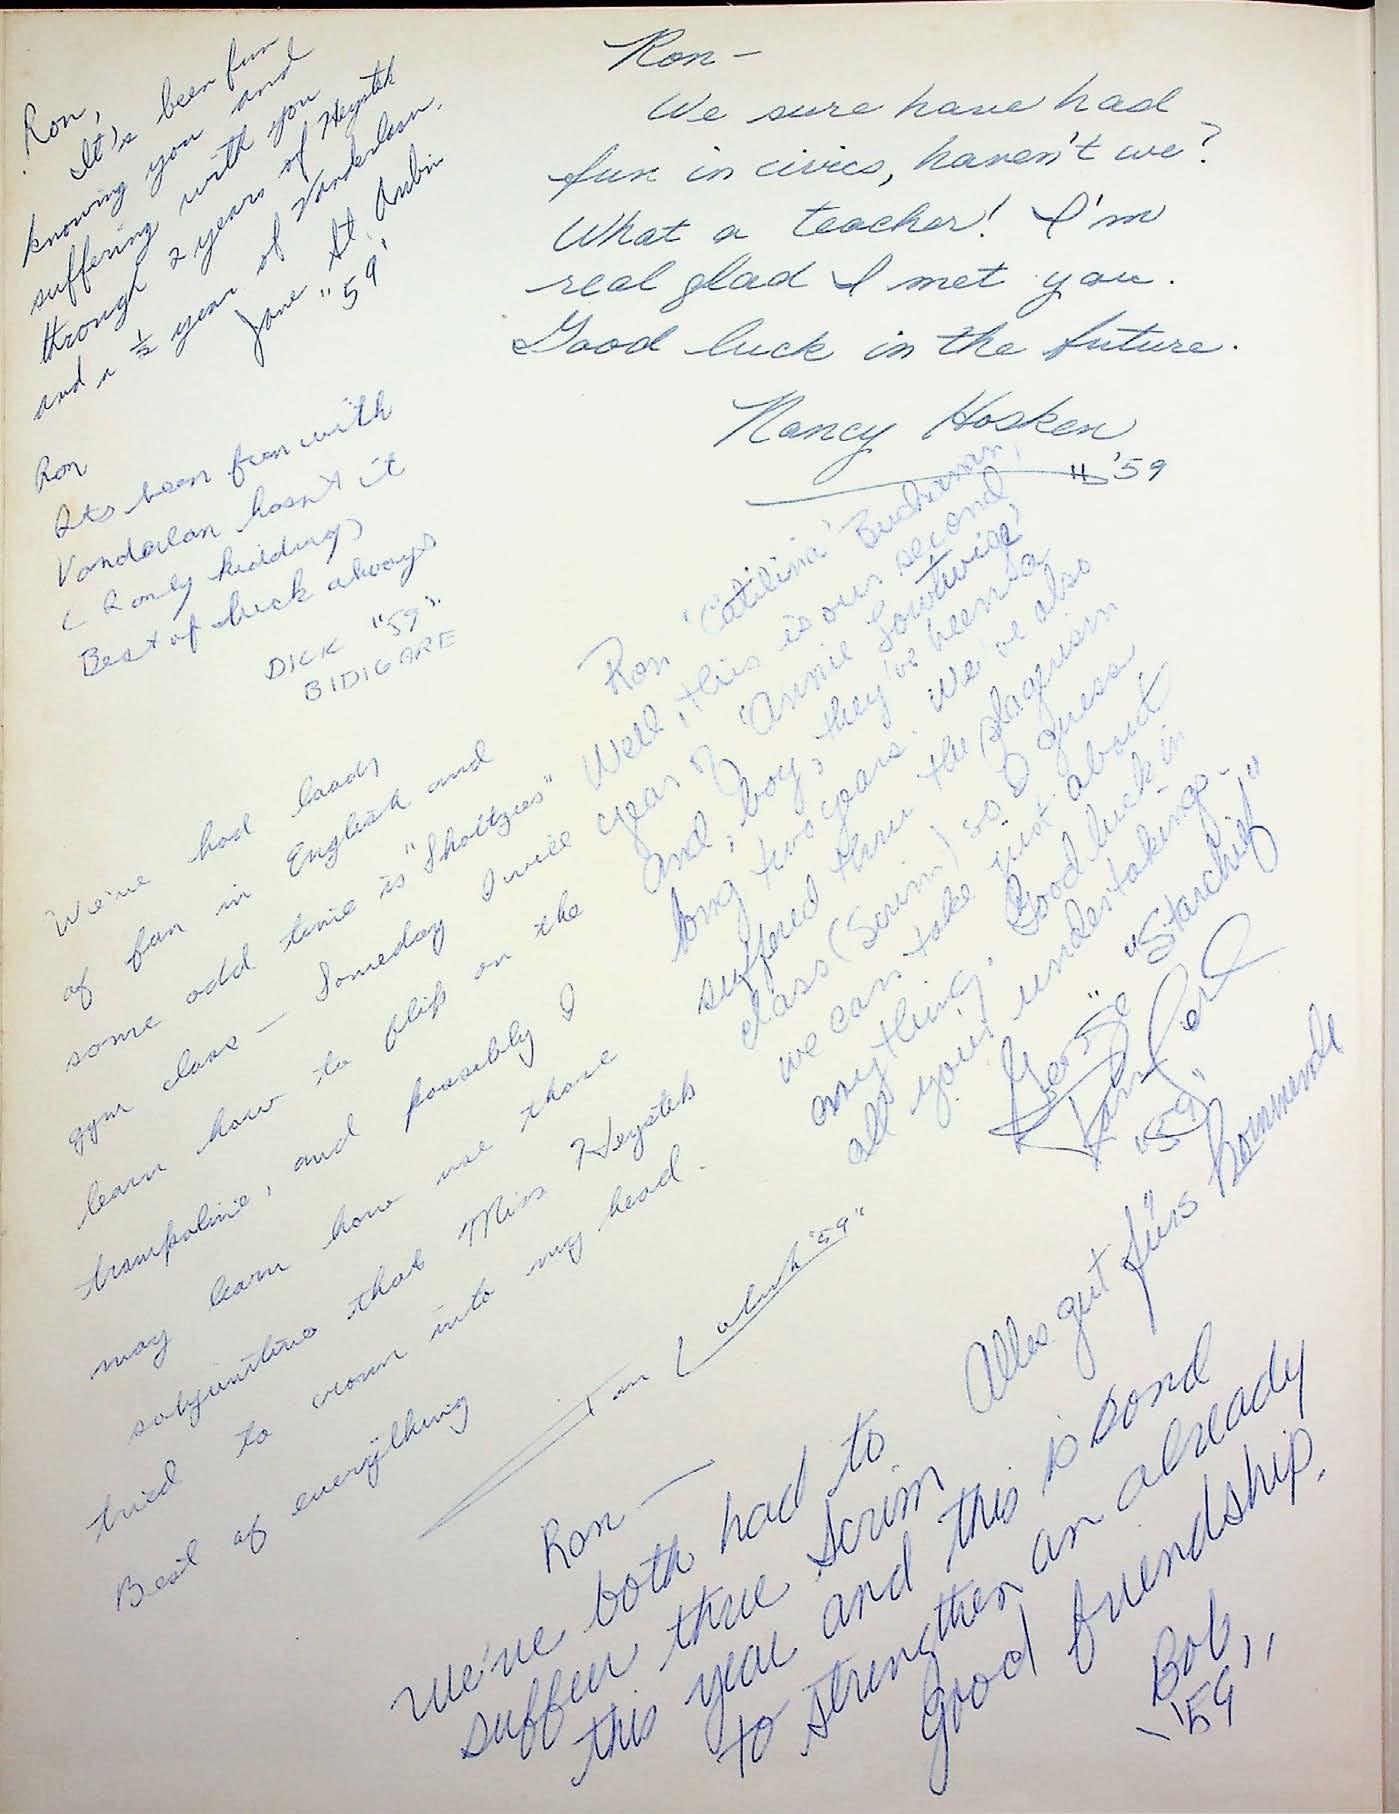 Ron,
It's been fun
knowing you and
suffering with you
through 2 years of Heystek
and a ½ year of Vanderlaan.
Jane St. Aubin
"59"
Ron-
We sure have had
fun in civics, haven't we?
What a teacher! I'm
real glad I met you.
Good luck in the future.
Nancy Hosken
'59
Ron
Its been fun with
Vanderlan hasn't it
(I only kidding)
Best of luck always
DICK "59".
BIDIGARE
Ron 'Catilina' Buchanan,
Well, this is our second
year of "Annie Lowtwise"
and, boy, they've been a
long two years. We've also
suffered thru the plagurism
class (Scrim) so I guess
we can take just about
anything. Good luck in
all your undertakings-
George "Starchief"
"59"
Alles gut fürs kommende
We've had loads
of fun in English and
some odd time is "Sholtzies"
gym class - Someday I will
learn how to flip on the
trampoline, and possibly I
may learn how use those
subjunctives that Miss Heystek
tried to cram into my head.
Best of everything
"59"
Ron-
We've both had to
suffer thrue Scrim
this year and this is bond
to strengthen an already
good friendship.
Bob
'59"